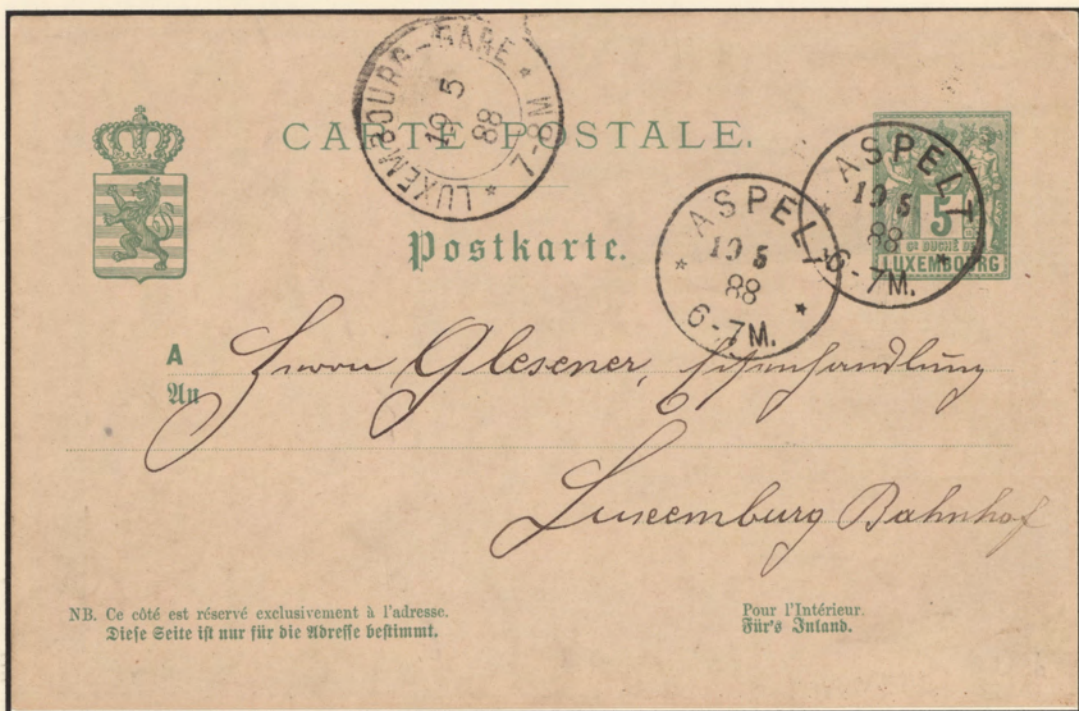 LUXEMBOURG-GARE * 7-8M *
19 5
88
CARTE POSTALE.
Postkarte.
ASPELT
19 5
88
6-7M.
ASPELT
19 5
88
6-7M.
5
GD DUCHÉ DE
LUXEMBOURG
A Herrn Glesener, Eisenhandlung
An
Luxemburg Bahnhof
NB. Ce côté est réservé exclusivement à l'adresse.
Diese Seite ist nur für die Adresse bestimmt.
Pour l'Intérieur.
Für's Inland.